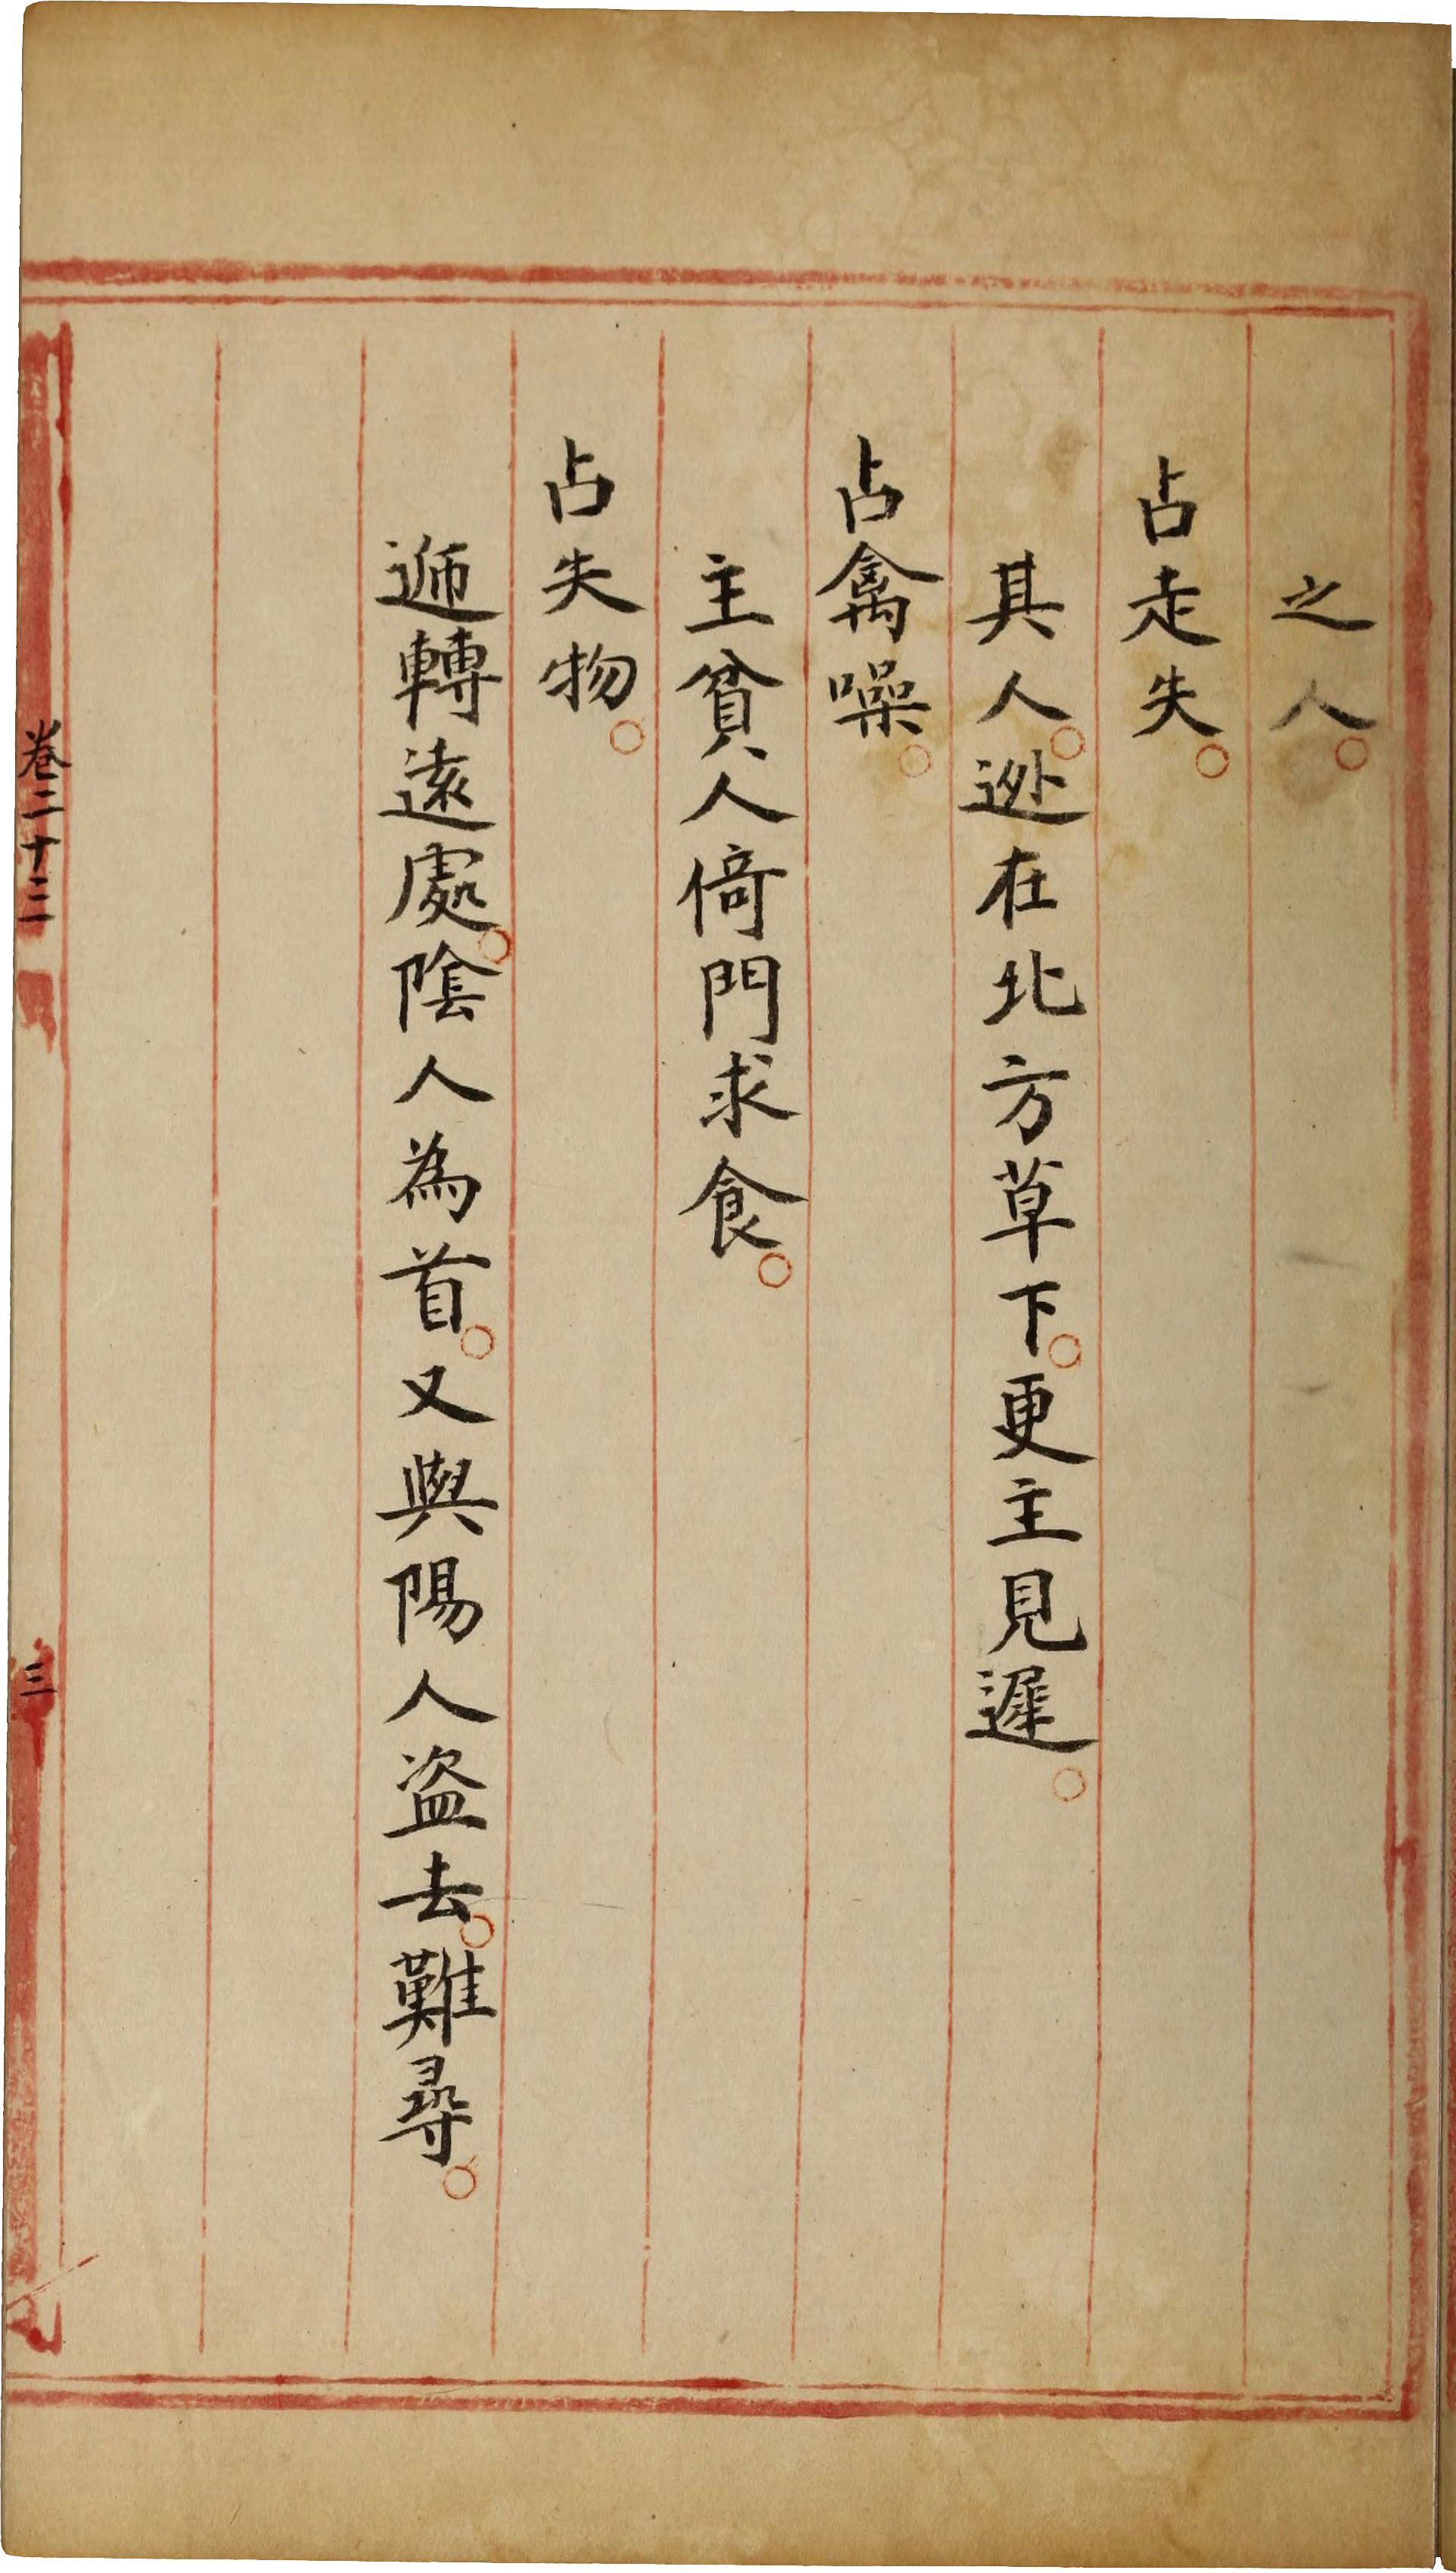 之人○
占走失○
其人○逊在北方草下○更主見遲○
占禽噪○
主貧人倚門求食○
占失物○
遞轉遠處○陰人為首○又與陽人盗去○難尋○
卷二十三
三